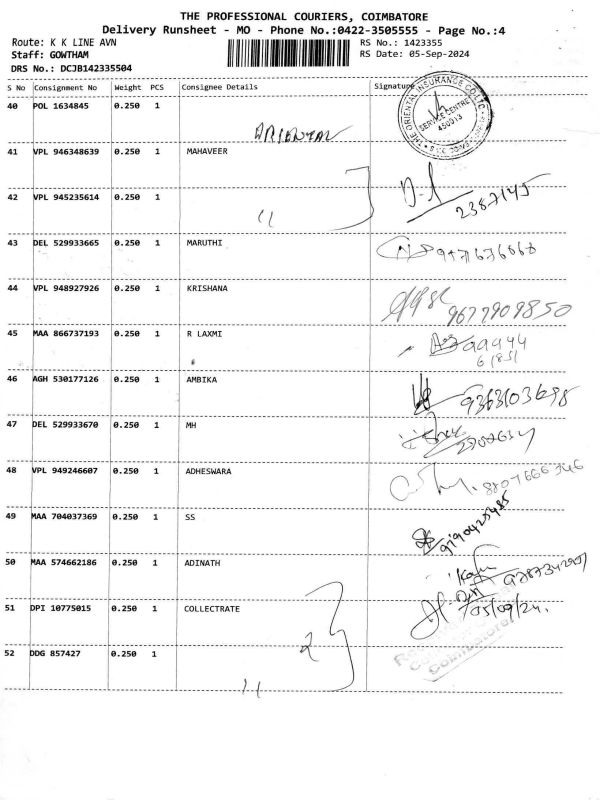 THE PROFESSIONAL COURIERS, COIMBATORE
Delivery Runsheet - MO - Phone No.:0422-3505555 - Page No.:4
Route: K K LINE AVN
RS No.: 1423355
Staff: GOWTHAM
RS Date: 05-Sep-2024
DRS No.: DCJB142335504
S No Consignment No Weight PCS Consignee Details Signature
40 POL 1634845 0.250 1
THE ORIENTAL INSURANCE CO LTD
SERVICE CENTRE
450313
ORIENTAL
41 VPL 946348639 0.250 1 MAHAVEER
42 VPL 945235614 0.250 1
2387145
43 DEL 529933665 0.250 1 MARUTHI
44 VPL 948927926 0.250 1 KRISHANA
9677909850
45 MAA 866737193 0.250 1 R LAXMI
99944
61851
46 AGH 530177126 0.250 1 AMBIKA
9363103698
47 DEL 529933670 0.250 1 MH
48 VPL 949246607 0.250 1 ADHESWARA
8807666346
49 MAA 704037369 0.250 1 SS
9190425485
50 MAA 574662186 0.250 1 ADINATH
51 DPI 10775015 0.250 1 COLLECTRATE
05/09/24.
52 DDG 857427 0.250 1
Coimbatore